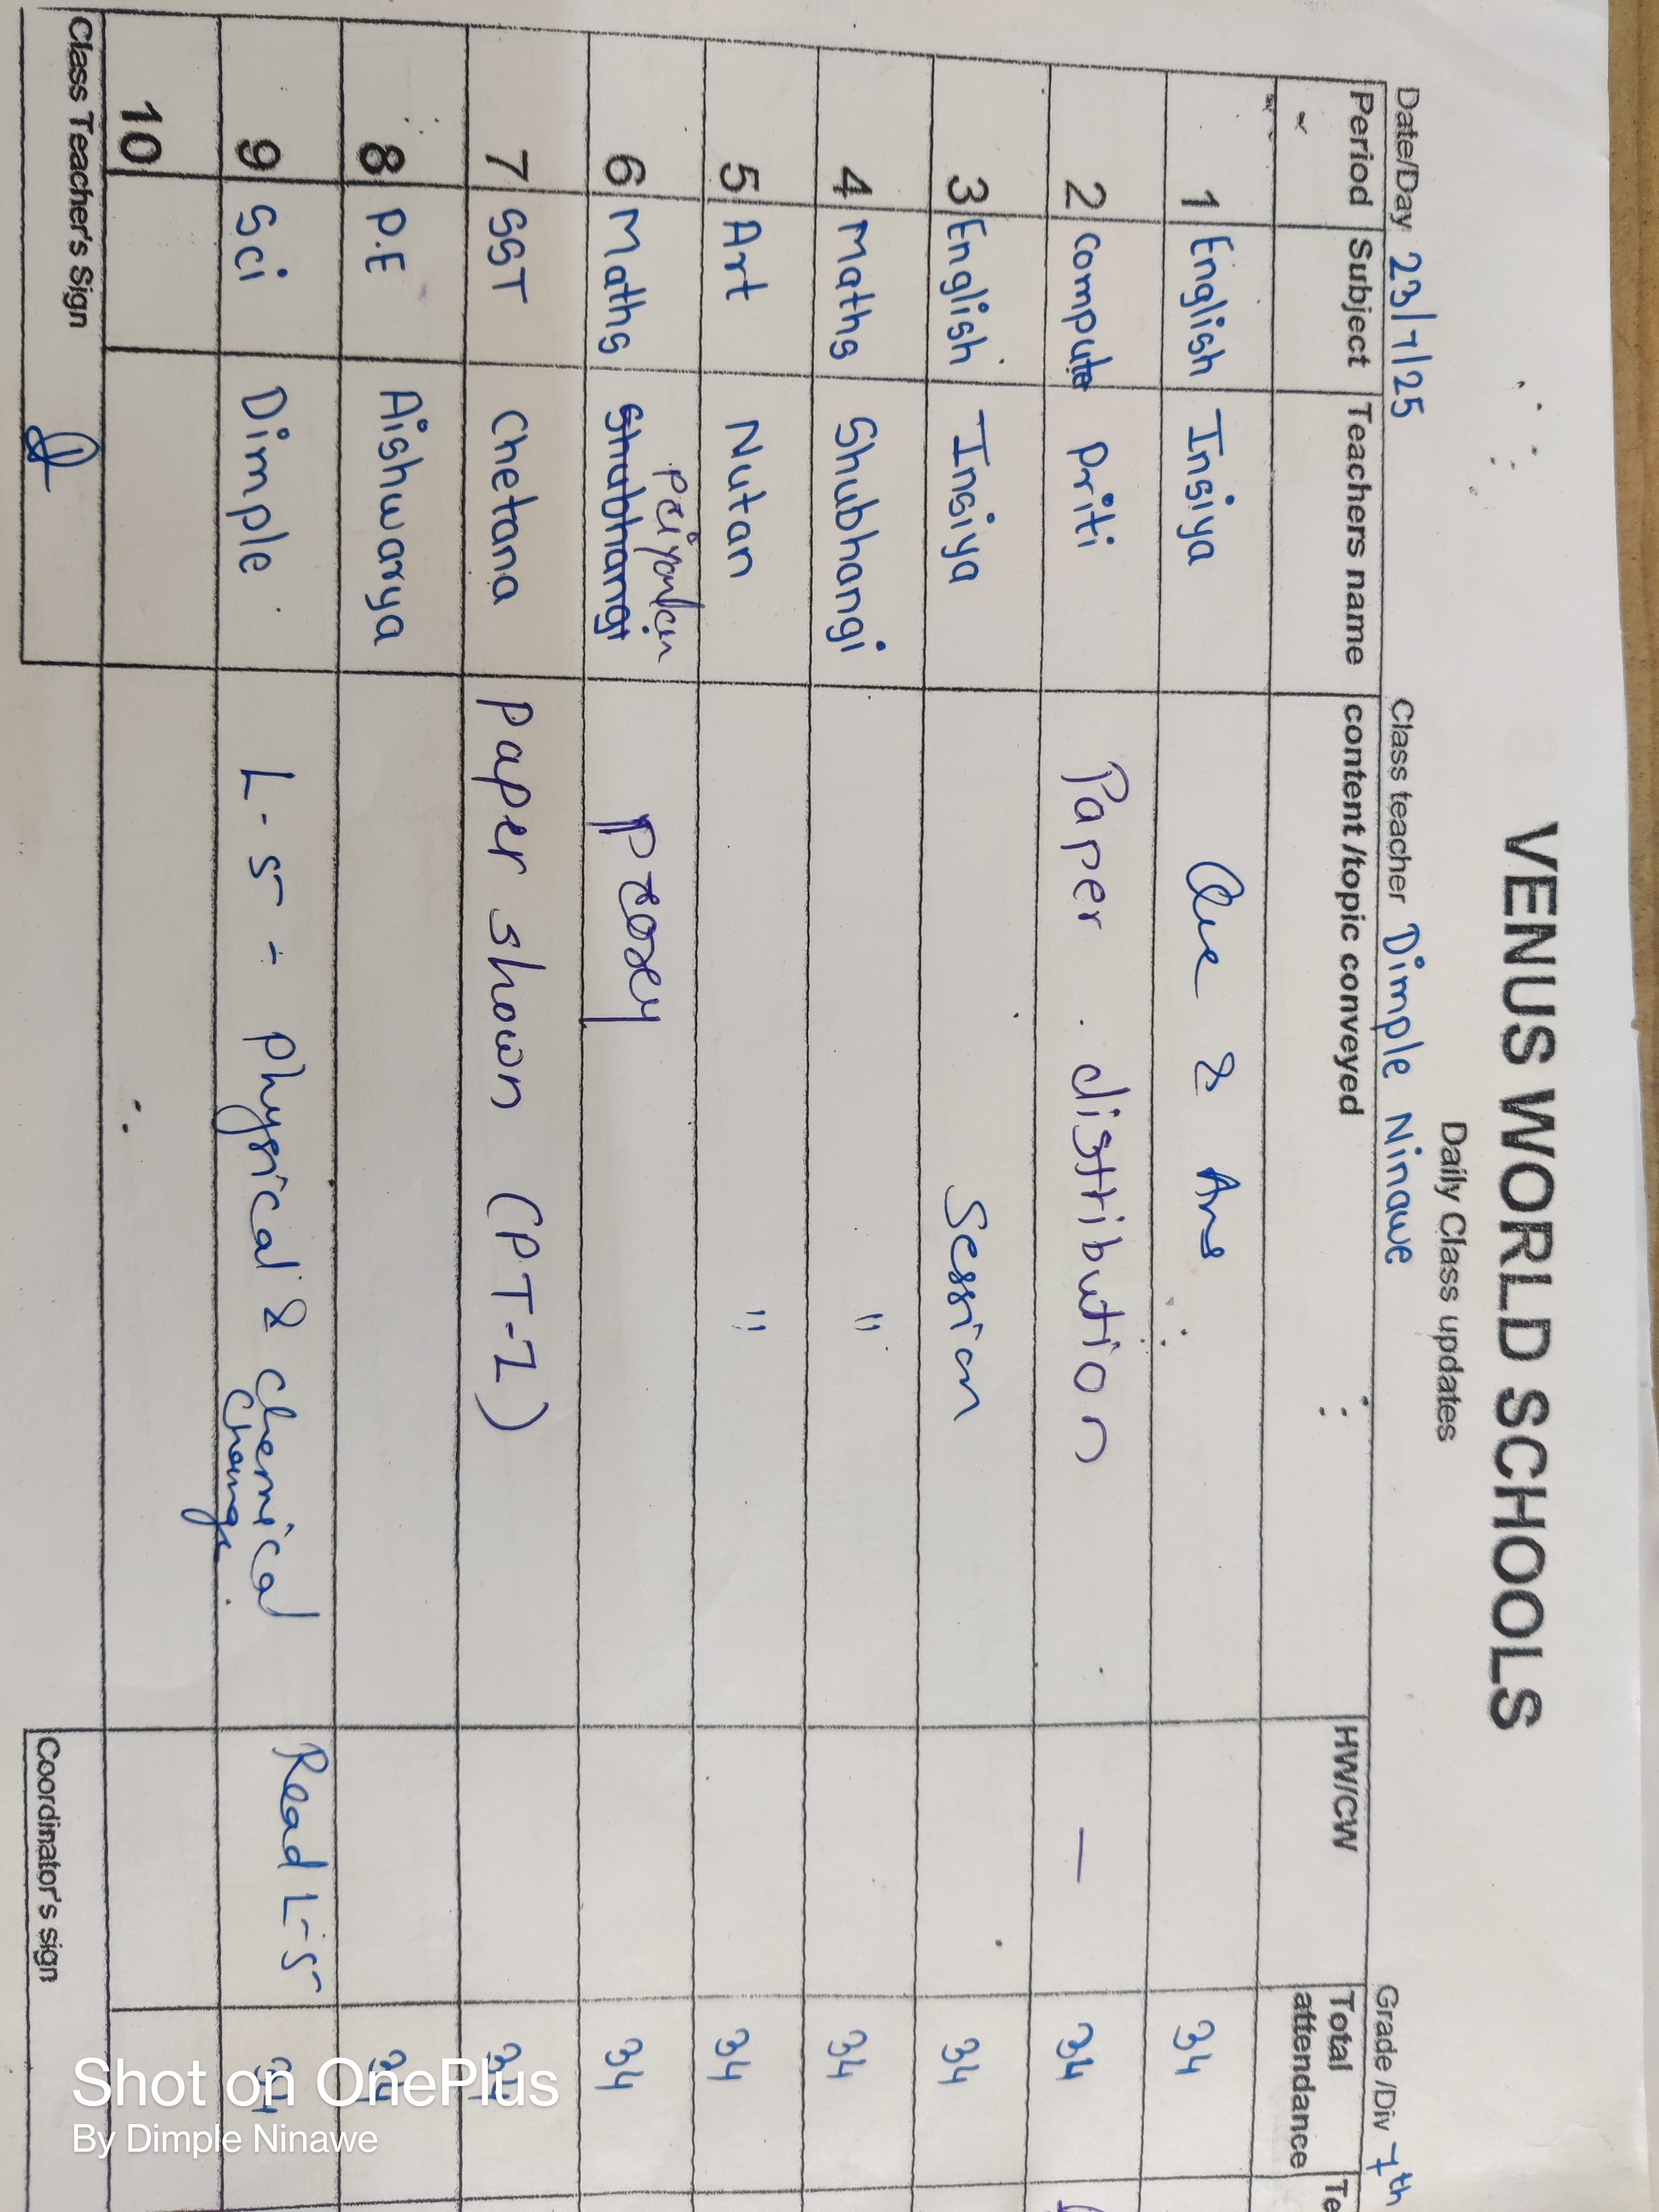 VENUS WORLD SCHOOLS
Daily Class updates
Date/Day 23/7/25 Class teacher Dimple Ninawe Grade /Div 7th
Period Subject Teachers name content /topic conveyed HW/CW Total attendance Te
1 English Insiya Que & Ans 34
2 Compute Priti Paper distribution — 34
3 English Insiya Session 34
4 Maths Shubhangi " 34
5 Art Nutan " 34
6 Maths Shubhangi Proxy 34
7 SST Chetana paper shown (PT-1) 34
8 P.E Aishwarya 34
9 Sci Dimple L-5 - Physical & Chemical Change. Read L-5 34
10
Class Teacher's Sign Coordinator's sign
Shot on OnePlus
By Dimple Ninawe